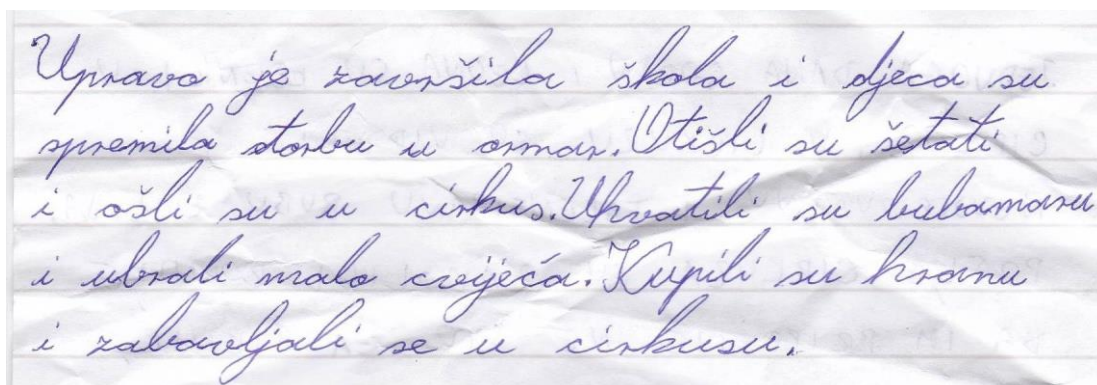 Upravo je završila škola i djeca su
spremila storbu u ormar. Otišli su šetati
i ošli su u cirkus. Uhvatili su bubamaru
i ubrali malo cvijeća. Kupili su hranu
i zabavljali se u cirkusu.